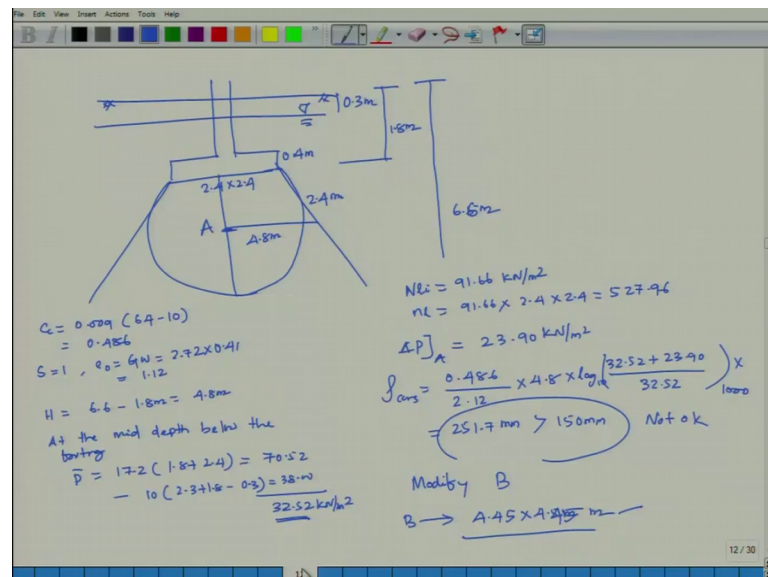 File Edit View Insert Actions Tools Help
B I
0.3m
1.8m
0.4m
2.4 x 2.4
2.4m
A
4.8m
6.6m
Cc = 0.009 (64-10)
= 0.486
S=1, e0 = GW = 2.72x0.41
= 1.12
H = 6.6 - 1.8m = 4.8m
At the mid depth below the
P̄ = 17.2 (1.8+2.4) = 70.52
- 10 (2.3+1.8 - 0.3) = 38.00
32.52 kN/m²
= 91.66 KN/m²
= 91.66 x 2.4 x 2.4 = 527.96
ΔP]A = 23.90 KN/m²
= 0.486 / 2.12 x 4.8 x log10 (32.52 + 23.90 / 32.52) x 1000
= 251.7 mm > 150mm Not ok
Modify B
B → 4.45 x 4.45 m
12 / 30